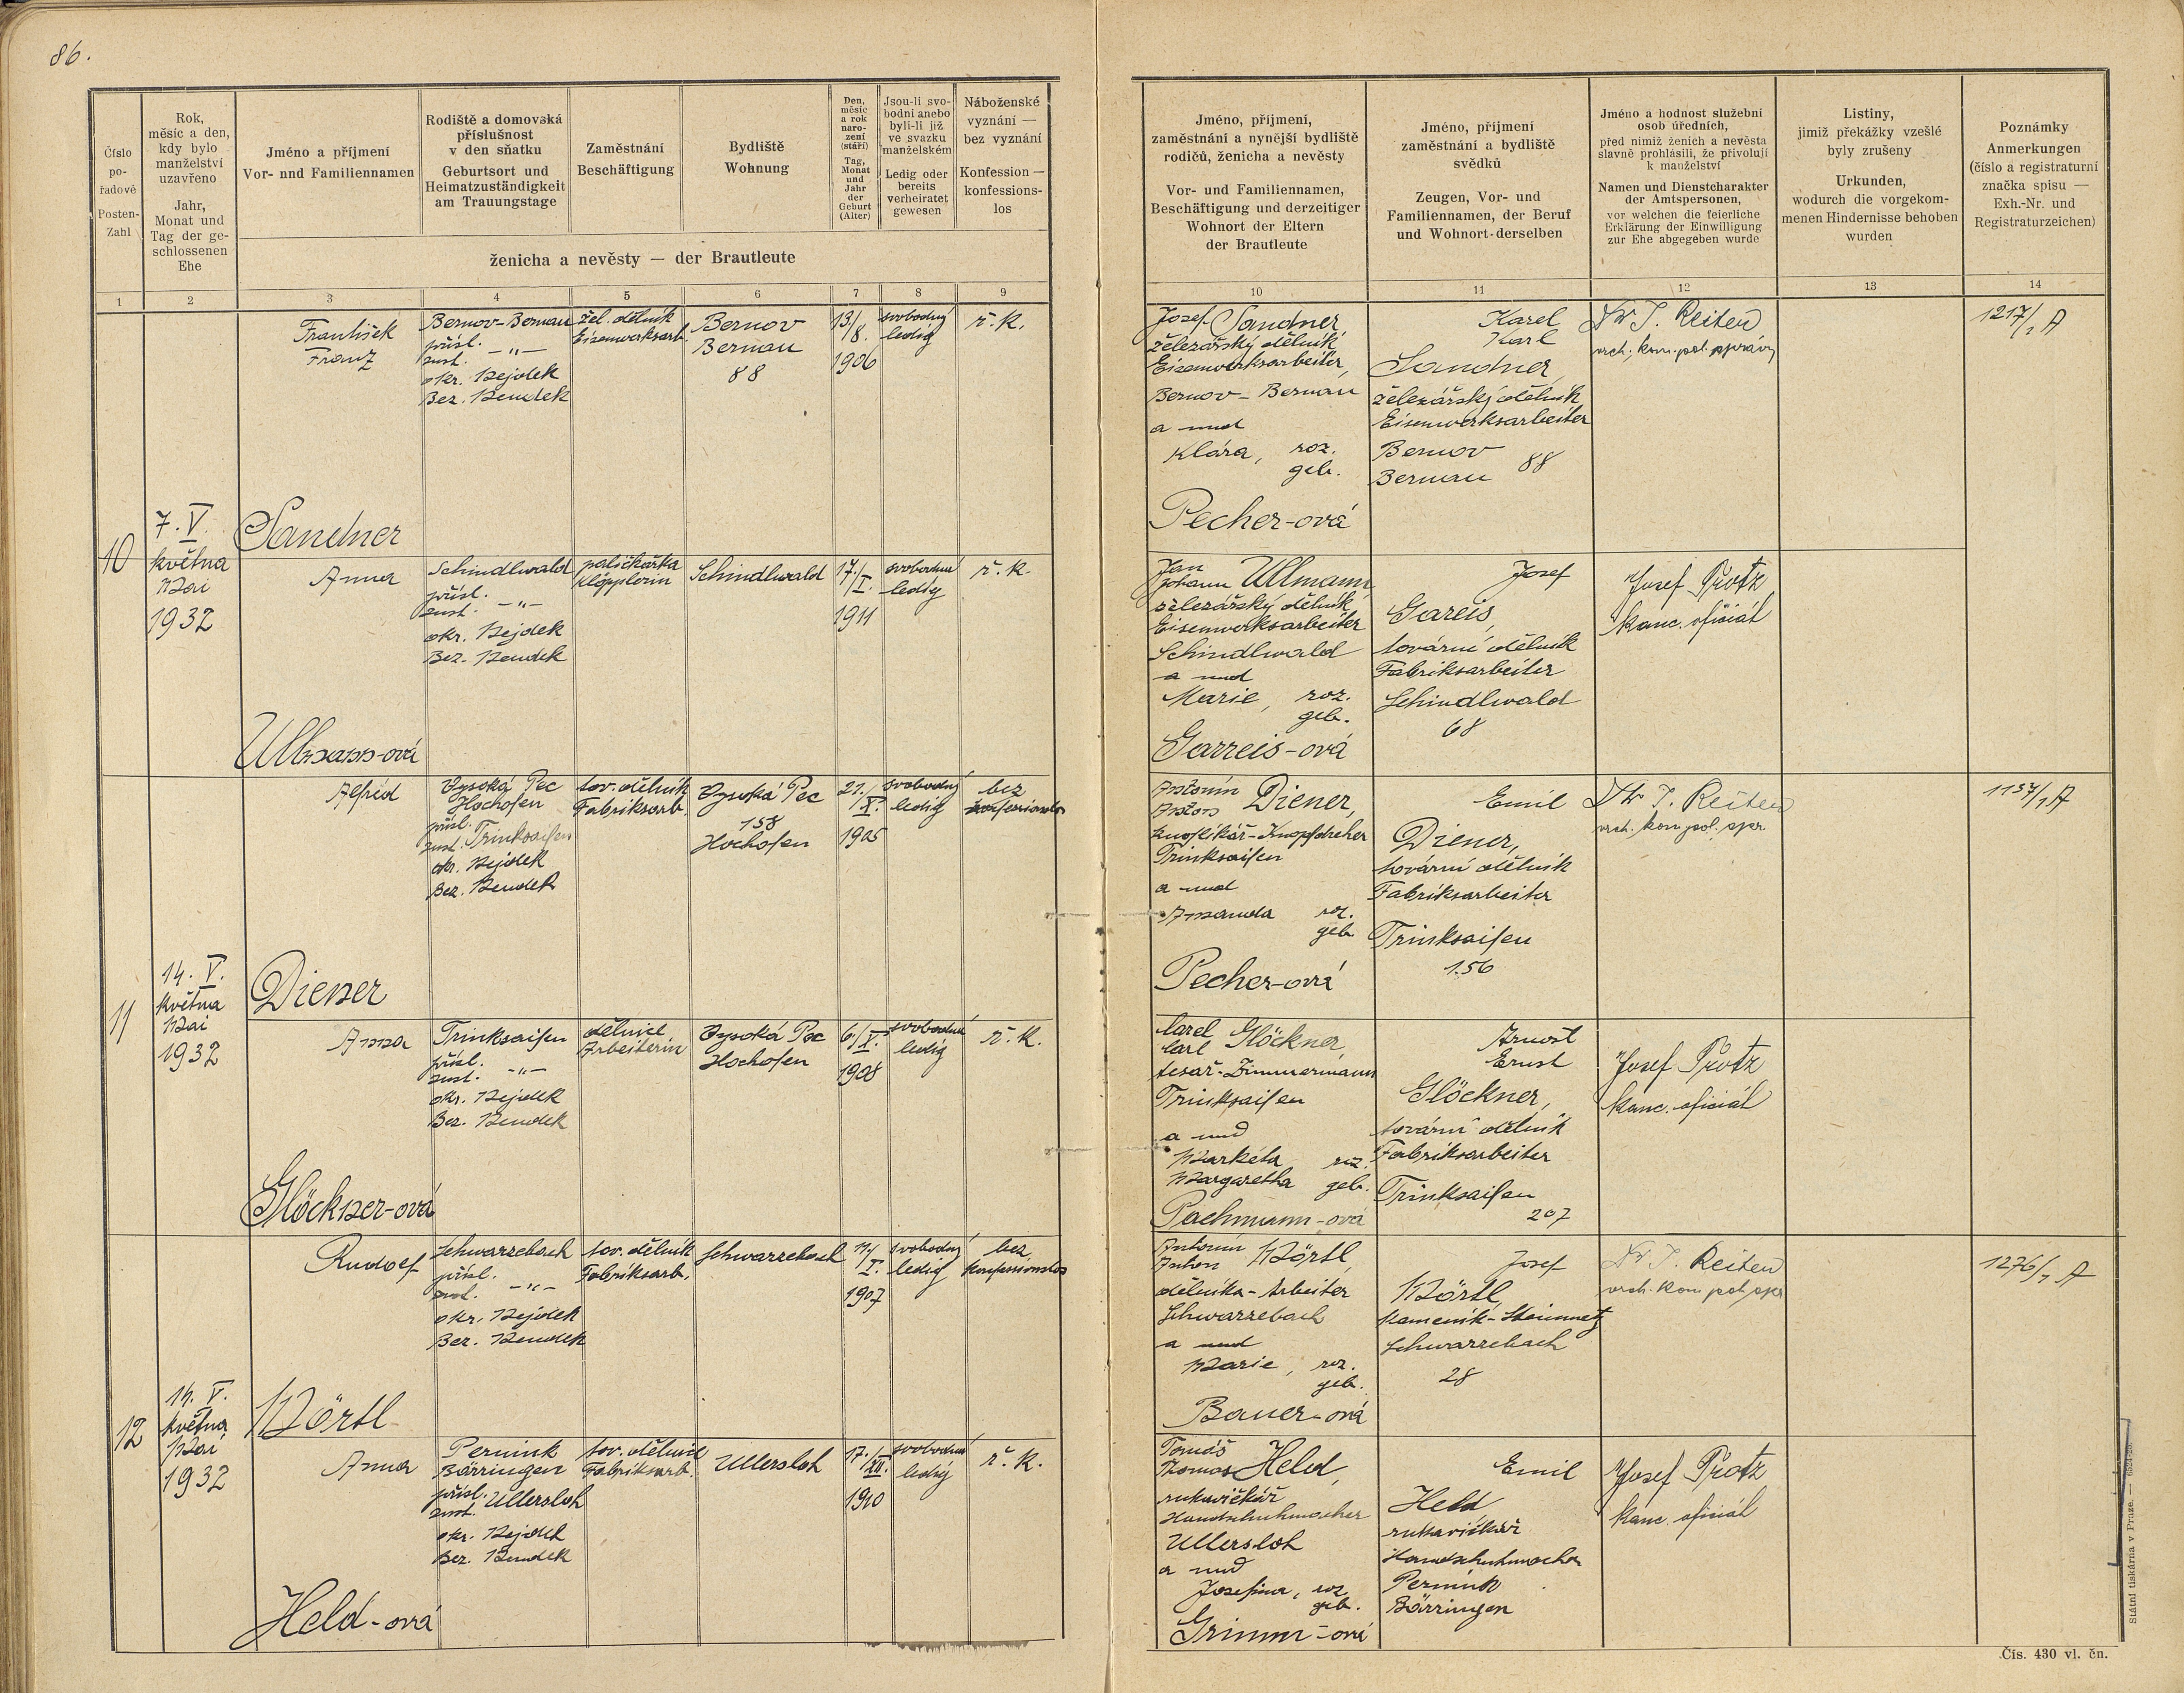 86.
Číslo
po-
řadové
Posten-
Zahl
Rok,
měsíc a den,
kdy bylo
manželství
uzavřeno
Jahr,
Monat und
Tag der ge-
schlossenen
Ehe
Jméno a příjmení
Vor- und Familiennamen
Rodiště a domovská
příslušnost
v den sňatku
Geburtsort und
Heimatzuständigkeit
am Trauungstage
Zaměstnání
Beschäftigung
Bydliště
Wohnung
Den,
měsíc
a rok
naro-
zení
(stáří)
Tag,
Monat
und
Jahr
der
Geburt
(Alter)
Jsou-li svo-
bodni anebo
byli-li již
ve svazku
manželském
Ledig oder
bereits
verheiratet
gewesen
Náboženské
vyznání —
bez vyznání
Konfession —
konfessions-
los
ženicha a nevěsty — der Brautleute
1 2 3 4 5 6 7 8 9
Jméno, příjmení,
zaměstnání a nynější bydliště
rodičů, ženicha a nevěsty
Vor- und Familiennamen,
Beschäftigung und derzeitiger
Wohnort der Eltern
der Brautleute
Jméno, příjmení
zaměstnání a bydliště
svědků
Zeugen, Vor- und
Familiennamen, der Beruf
und Wohnort derselben
Jméno a hodnost služební
osob úředních,
před nimiž ženich a nevěsta
slavně prohlásili, že přivolují
k manželství
Namen und Dienstcharakter
der Amtspersonen,
vor welchen die feierliche
Erklärung der Einwilligung
zur Ehe abgegeben wurde
Listiny,
jimiž překážky vzešlé
byly zrušeny
Urkunden,
wodurch die vorgekom-
menen Hindernisse behoben
wurden
Poznámky
Anmerkungen
(číslo a registraturní
značka spisu —
Exh.-Nr. und
Registraturzeichen)
10 11 12 13 14
10
7. V.
května
Mai
1932
František
Franz
Sandner
Bernov-Bernau
přísl.
zust. —"—
okr. Nejdek
Bez. Neudek
žel. dělník
Eisenwerksarb.
Bernov
Bernau
88
13/
8.
1906
svobodný
ledig
ř. k.
Josef Sandner,
železářský dělník
Eisenwerksarbeiter,
Bernov - Bernau
a und
Klára, roz.
geb.
Pecher-ová
Karel
Karl
Sandner,
železářský dělník
Eisenwerksarbeiter
Bernov
Bernau 88
Dr J. Reiten
vrch. kom. pol. správy
1217/1 A
Anna
Ullmann-ová
Schindlwald
přísl.
zust. —"—
okr. Nejdek
Bez. Neudek
paličkářka
Klöpplerin
Schindlwald
17/
I.
1911
svobodná
ledig
ř. k.
Jan
Johann Ullmann,
železářský dělník
Eisenwerksarbeiter
Schindlwald
a und
Marie, roz.
geb.
Garreis-ová
Josef
Gareis,
tovární dělník
Fabriksarbeiter
Schindlwald
68
Josef Protz
kanc. oficiál
11
14. V.
května
Mai
1932
Alfréd
Diener
Vysoká Pec
Hochofen
přísl.
zust. Trinksaifen
okr. Nejdek
Bez. Neudek
tov. dělník
Fabriksarb.
Vysoká Pec
158
Hochofen
21./
X.
1905
svobodný
ledig
bez
konfessionslos
Antonín
Anton Diener,
knoflíkář-Knopfdreher
Trinksaifen
a und
Amanda roz.
geb.
Pecher-ová
Emil
Diener,
tovární dělník
Fabriksarbeiter
Trinksaifen
156
Dr J. Reiten
vrch. kom. pol. spr.
1157/1 A
Anna
Glöckner-ová
Trinksaifen
přísl.
zust. —"—
okr. Nejdek
Bez. Neudek
dělnice
Arbeiterin
Vysoká Pec
Hochofen
6/
X.
1908
svobodná
ledig
ř. k.
Karel
Karl Glöckner,
tesař-Zimmermann
Trinksaifen
a und
Markéta roz.
Margaretha geb.
Pachmann-ová
Arnošt
Ernst
Glöckner,
tovární dělník
Fabriksarbeiter
Trinksaifen
207
Josef Protz
kanc. oficiál
12
14. V.
května
Mai
1932
Rudolf
Mörtl
Schwarzebach
přísl.
zust. —"—
okr. Nejdek
Bez. Neudek
tov. dělník
Fabriksarb.
Schwarzebach
I.
1907
svobodný
ledig
bez
konfessionslos
Antonín
Anton Mörtl,
dělníka - Arbeiter
Schwarzebach
a und
Marie, roz.
geb.
Bauer-ová
Josef
Mörtl,
kameník-Steinmetz
Schwarzebach
28
Dr J. Reiten
vrch. kom pol. spr
1276/1 A
Anna
Held-ová
Pernink
Bärringen
přísl.
zust. Ullersloh
okr. Nejdek
Bez. Neudek
tov. dělnice
Fabriksarb.
Ullersloh
17./
XII.
1910
svobodná
ledig
ř. k.
Tomáš
Thomas Held,
rukavičkář
Handschuhmacher
Ullersloh
a und
Josefina, roz
geb.
Grimm-ová
Emil
Held,
rukavičkář
Handschuhmacher
Pernink
Bärringen
Josef Protz
kanc. oficiál
Čís. 430 vl. čn.
Státní tiskárna v Praze. —